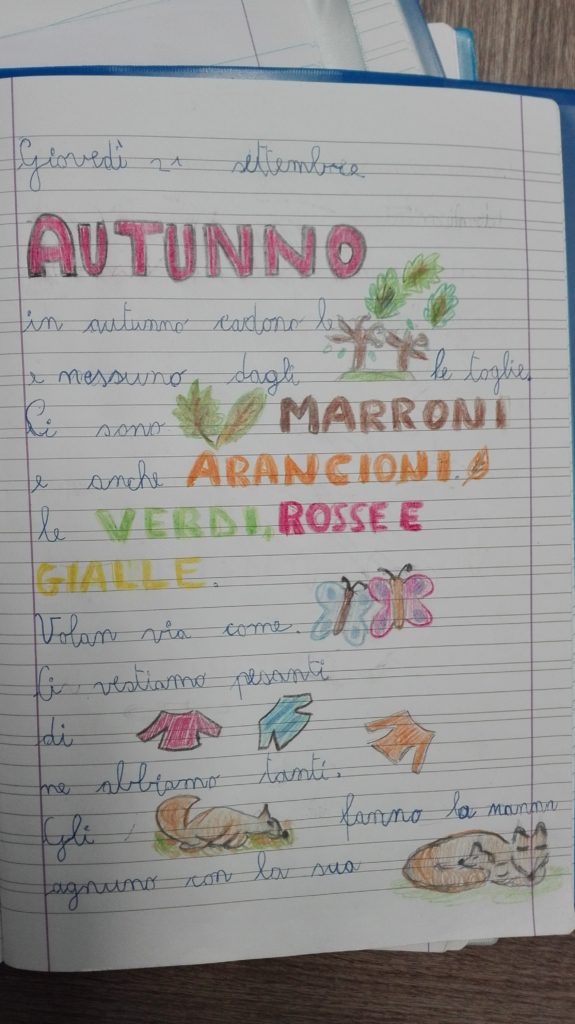 Giovedì 21 settembre
AUTUNNO
in autunno cadono le
e nessuno dagli le toglie.
Ci sono MARRONI
e anche ARANCIONI.
le VERDI, ROSSE E
GIALLE.
Volan via come.
Ci vestiamo pesanti
di
ne abbiamo tanti.
Gli fanno la nanna
ognuno con la sua